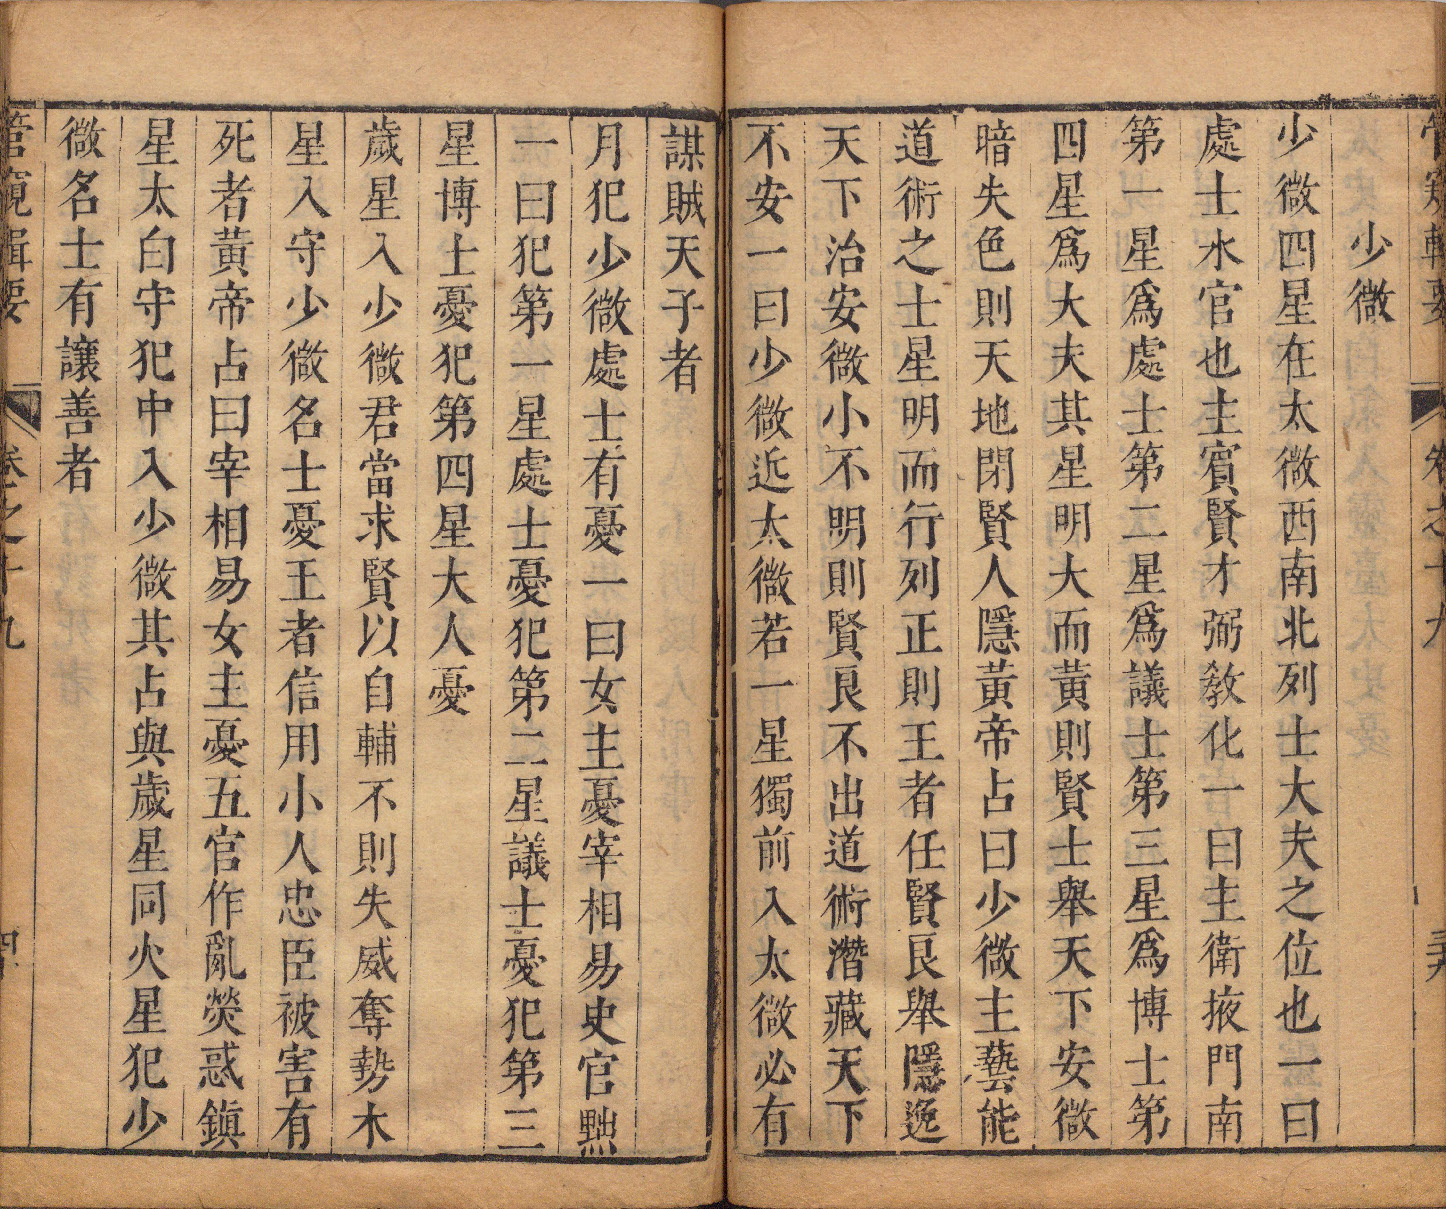 管窺輯要
卷之十九
少微
少微四星在太微西南北列士大夫之位也一曰
處士水官也主賓賢才弼教化一曰主衛掖門南
第一星爲處士第二星爲議士第三星爲博士第
四星爲大夫其星明大而黃則賢士舉天下安微
暗失色則天地閉賢人隱黃帝占曰少微主藝能
道術之士星明而行列正則王者任賢良舉隱逸
天下治安微小不明則賢良不出道術潛藏天下
不安一曰少微近太微若一星獨前入太微必有
謀賊天子者
月犯少微處士有憂一曰女主憂宰相易史官黜
一曰犯第一星處士憂犯第二星議士憂犯第三
星博士憂犯第四星大人憂
歲星入少微君當求賢以自輔不則失威奪勢木
星入守少微名士憂王者信用小人忠臣被害有
死者黃帝占曰宰相易女主憂五官作亂熒惑鎮
星太白守犯中入少微其占與歲星同火星犯少
微名士有讓善者
管窺輯要
卷之十九